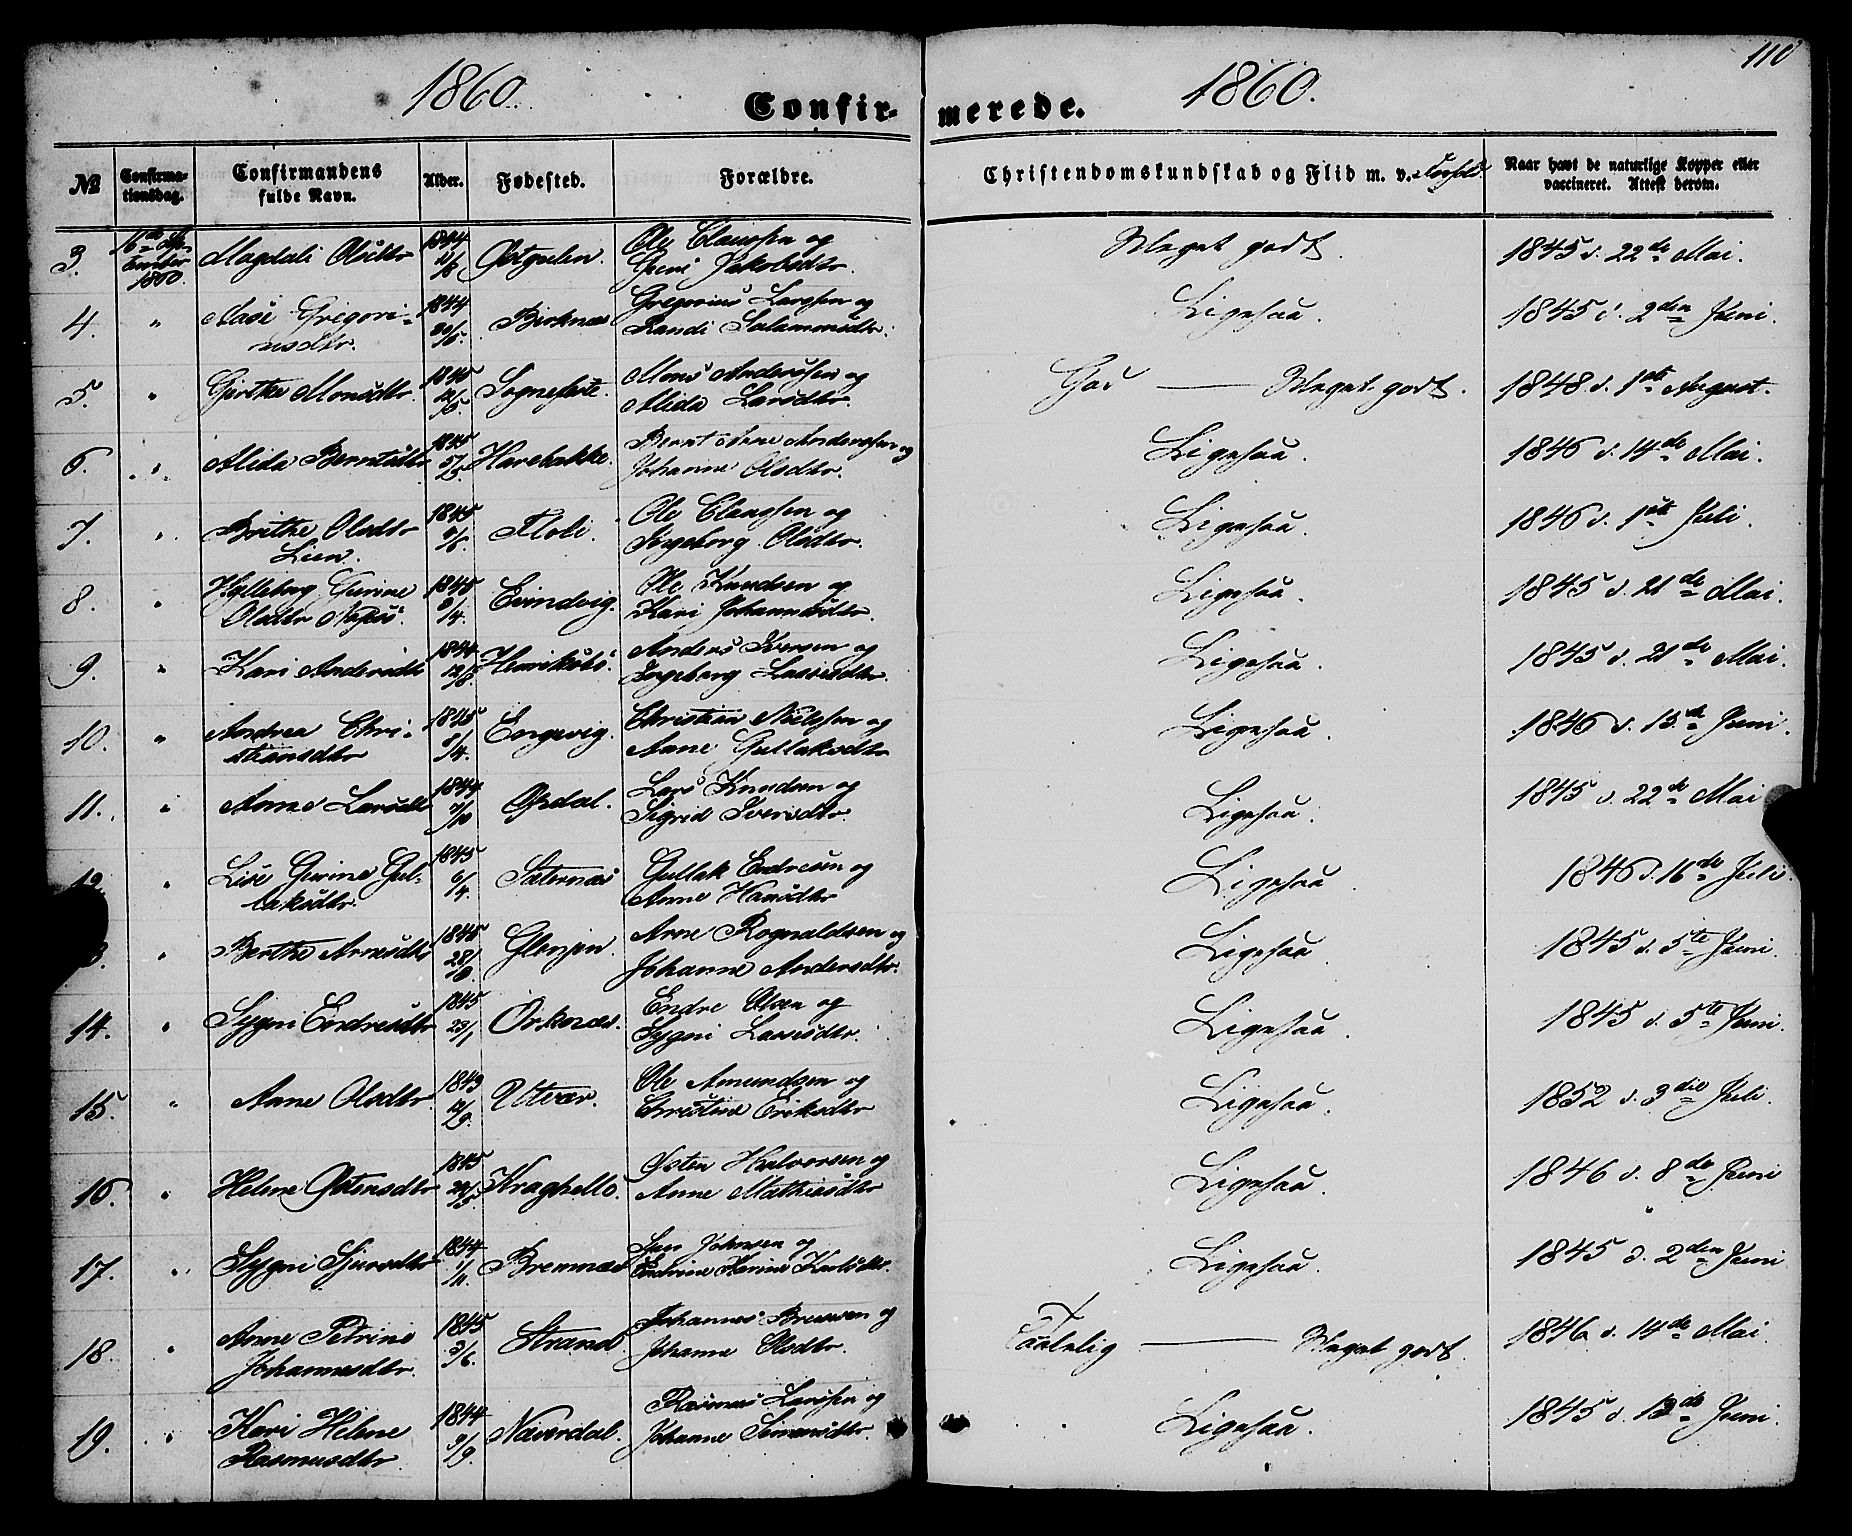 110
1860.
1860.
Confirmerede.
№
Confirmationsdag.
Confirmandens fulde Navn.
Alder.
Fødested.
Forældre.
Christendomskundskab og Flid m. v.
Naar havt de naturlige Kopper eller vaccineret. Attest derom.
3. 16de 1860. Magdali Olsdtr 1844 Østgulen. Ole Clausen og Guri Jakobsdtr. Meget godt. 1845 d. 22de Mai.
4. " Aase Gregoriusdtr. 1844 Birknæs Gregorius Larssen og Randi Salamonsdtr. Ligesaa. 1845 d. 2den Juni.
5. " Gjertke Monsdtr. 1845 Sognefæste. Mons Anderssen og Alida Larsdtr. God — Meget godt. 1848 d. 1ste August.
6. " Alida Berntsdtr 1845 Harebakke. Bernt Anderssen og Johanne Olsdtr. Ligesaa. 1846 d. 14de Mai.
7. " Brithe Olsdtr Lien. 1845 Floli. Ole Claussen og Ingeborg Olsdtr. Ligesaa. 1846 d. 1ste Juli.
8. " Gurine Olsdtr 1845 Evindvig. Ole Knudsen og Kari Johannesdtr. Ligesaa. 1845 d. 21de Mai.
9. " Kari Andersdtr 1844 Henriksbø. Anders Iversen og Ingeborg Lassesdtr. Ligesaa. 1845 d. 21de Mai.
10. " Andrea Christiansdtr 1845 8/4. Engevig. Christian Nielssen og Anne Gullaksdtr Ligesaa. 1846 d. 15de Juni.
11. " Anne Larsdtr 1844 7/10 Opdal. Lars Knudsen og Sigrid Iversdtr. Ligesaa. 1845 d. 22de Mai
12. " Lise Gurine Gullaksdtr. 1845 6/4. Sæternæs Gullak Endresen og Anne Hansdtr Ligesaa. 1846 d. 16de Juli.
3. " Berthe Arnesdtr 1845 Glenjen. Arne Rognaldsen og Johanne Andersdtr. Ligesaa. 1845 d. 5te Juni.
14. " Sygni Endresdtr 1845 23/1 Orknæs. Endre Olsen og Sygni Lassesdtr. Ligesaa. 1845 d. 5te Juni.
15. " Anne Olsdtr. 1843 12/9. Utvær. Ole Amundsen og Christine Eriksdtr Ligesaa. 1852 d. 3die Juli.
16. " Helene Østensdtr 1845 Kraghello. Østen Halvorsen og Anne Mathiesdtr Ligesaa. 1846 d. 8de Juni
17. " Sygni Sjursdtr 1844 1/11. Bremnæs Sjur Johnsen og Karine Karlsdtr. Ligesaa. 1845 d. 2den Juni
18. " Anne Petrine Johannesdtr. 1845 3/6. Strand. Johannes og Johanne Olsdtr. Taalelig — Meget godt. 1846 d. 14de Mai
19. " Kari Helene Rasmusdtr 1844 9/9. Naverdal. Rasmus Larssen og Johanne Simensdtr. Ligesaa. 1845 d. 13de Juni.